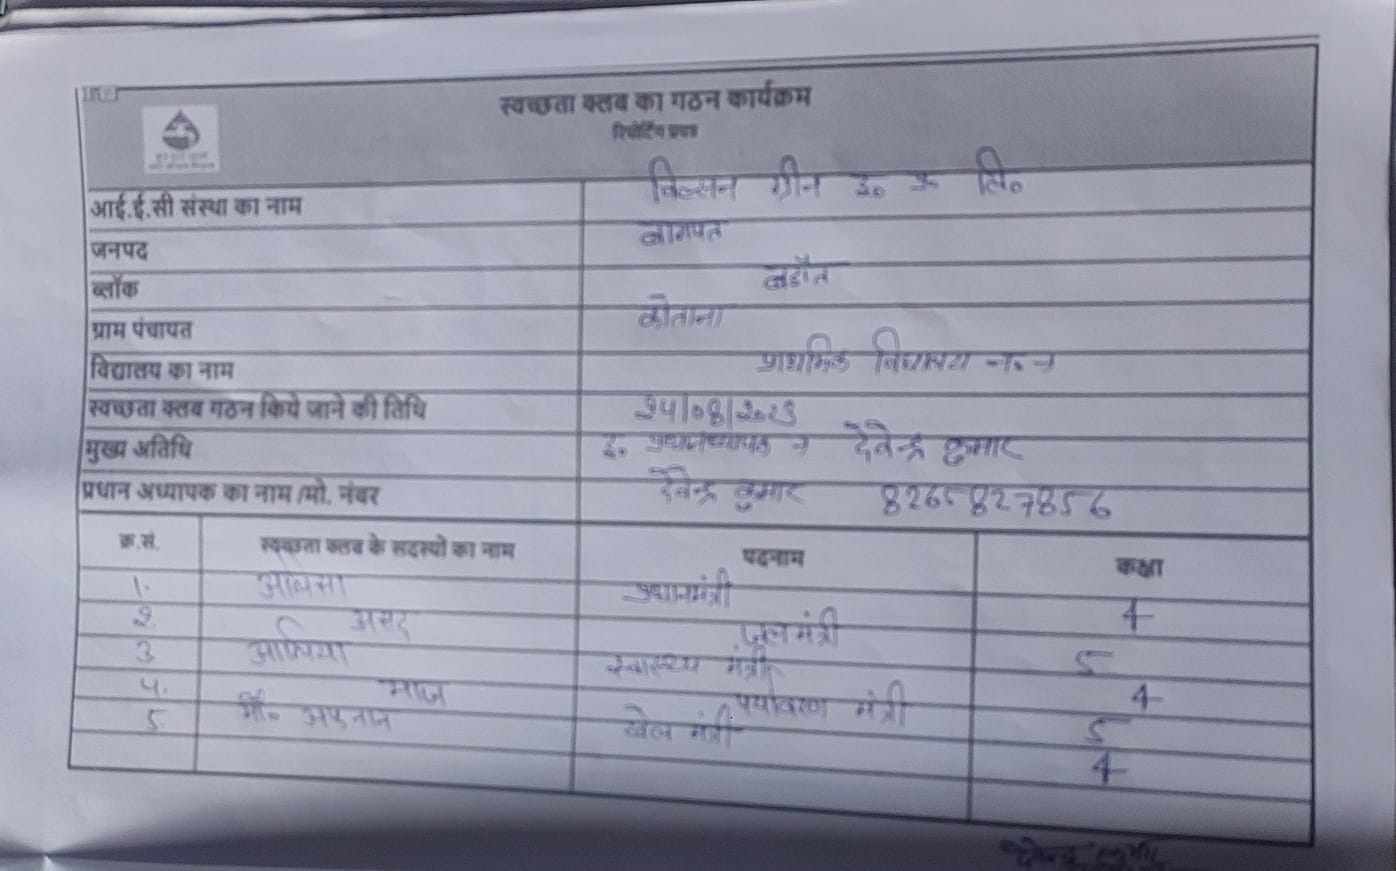 स्वच्छता क्लब का गठन कार्यक्रम
रिपोर्टिंग प्रपत्र
आई.ई.सी संस्था का नाम विल्सन ग्रीन इ० प्रा० लि०
जनपद बागपत
ब्लॉक बडौत
ग्राम पंचायत कोताना
विद्यालय का नाम प्राथमिक विद्यालय न० १
स्वच्छता क्लब गठन किये जाने की तिथि २५/०8/२०२३
मुख्य अतिथि इ० प्रधानाध्यापक देवेन्द्र कुमार
प्रधान अध्यापक का नाम/मो. नंबर देवेन्द्र कुमार 8265827856
क्र.सं. स्वच्छता क्लब के सदस्यो का नाम पदनाम कक्षा
१. प्रधानमंत्री 4
२. असद जल मंत्री 5
३ स्वास्थ्य मंत्री 4
५. माज पर्यावरण मंत्री 5
5 मौ० अफनान खेल मंत्री 4
देवेन्द्र कुमार